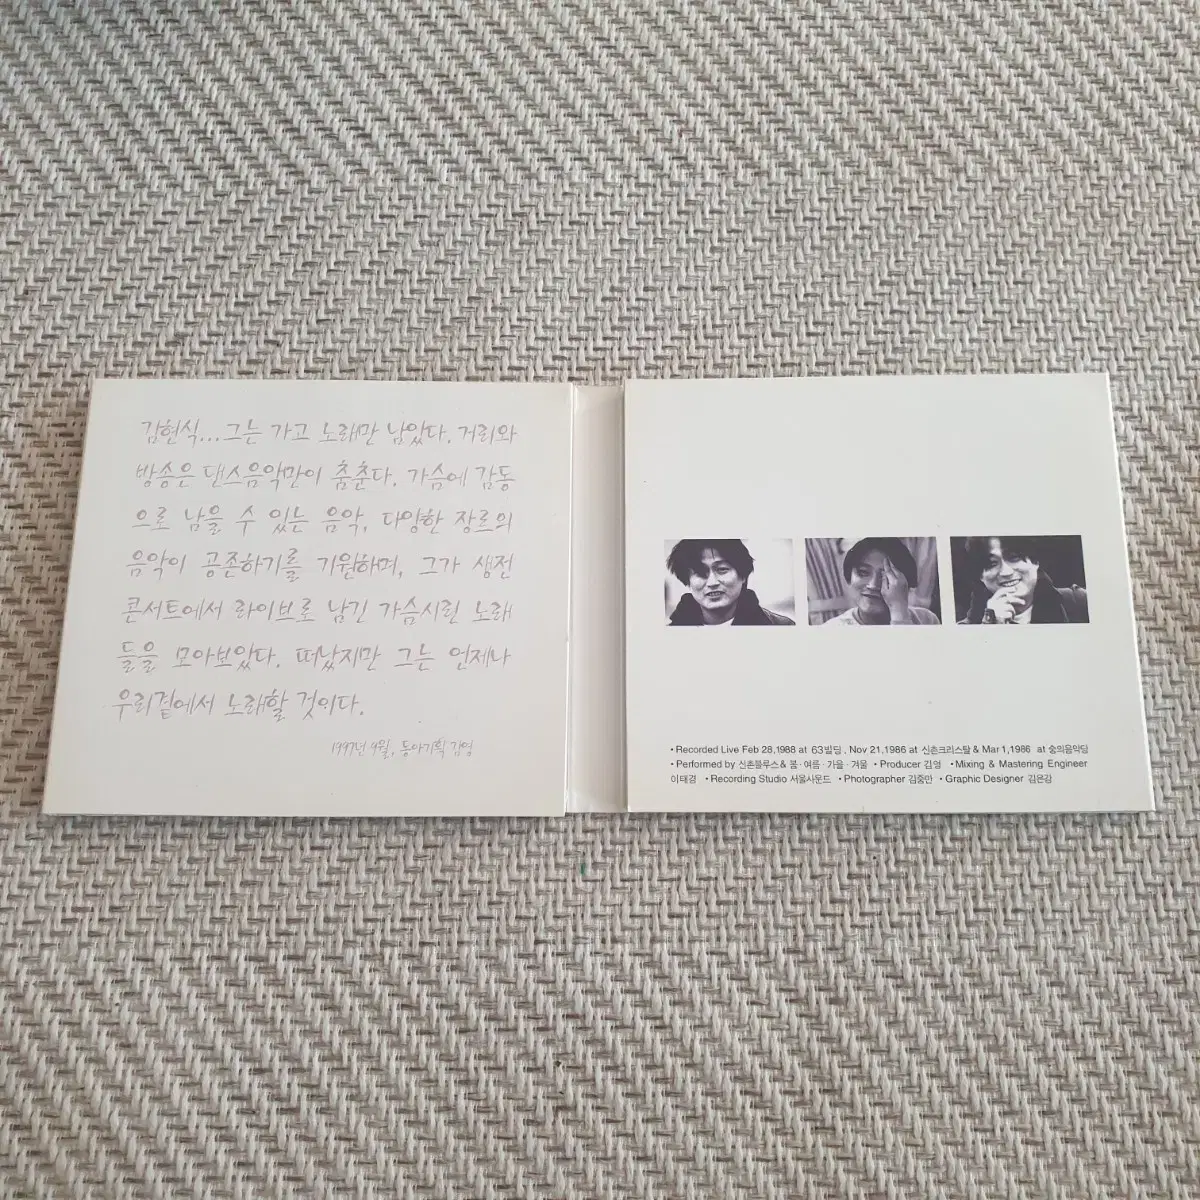 김현식...그는 가고 노래만 남았다. 거리와
방송은 댄스음악만이 춤춘다. 가슴에 감동
으로 남을 수 있는 음악, 다양한 장르의
음악이 공존하기를 기원하며, 그가 생전
콘서트에서 라이브로 남긴 가슴시린 노래
들을 모아보았다. 떠났지만 그는 언제나
우리곁에서 노래할 것이다.
1997년 9월, 동아기획 김영
• Recorded Live Feb 28,1988 at 63빌딩 , Nov 21,1986 at 신촌크리스탈 & Mar 1,1986 at 숭의음악당
• Performed by 신촌블루스 & 봄 · 여름 · 가을 · 겨울 • Producer 김영 • Mixing & Mastering Engineer
이태경 • Recording Studio 서울사운드 • Photographer 김중만 • Graphic Designer 김은강